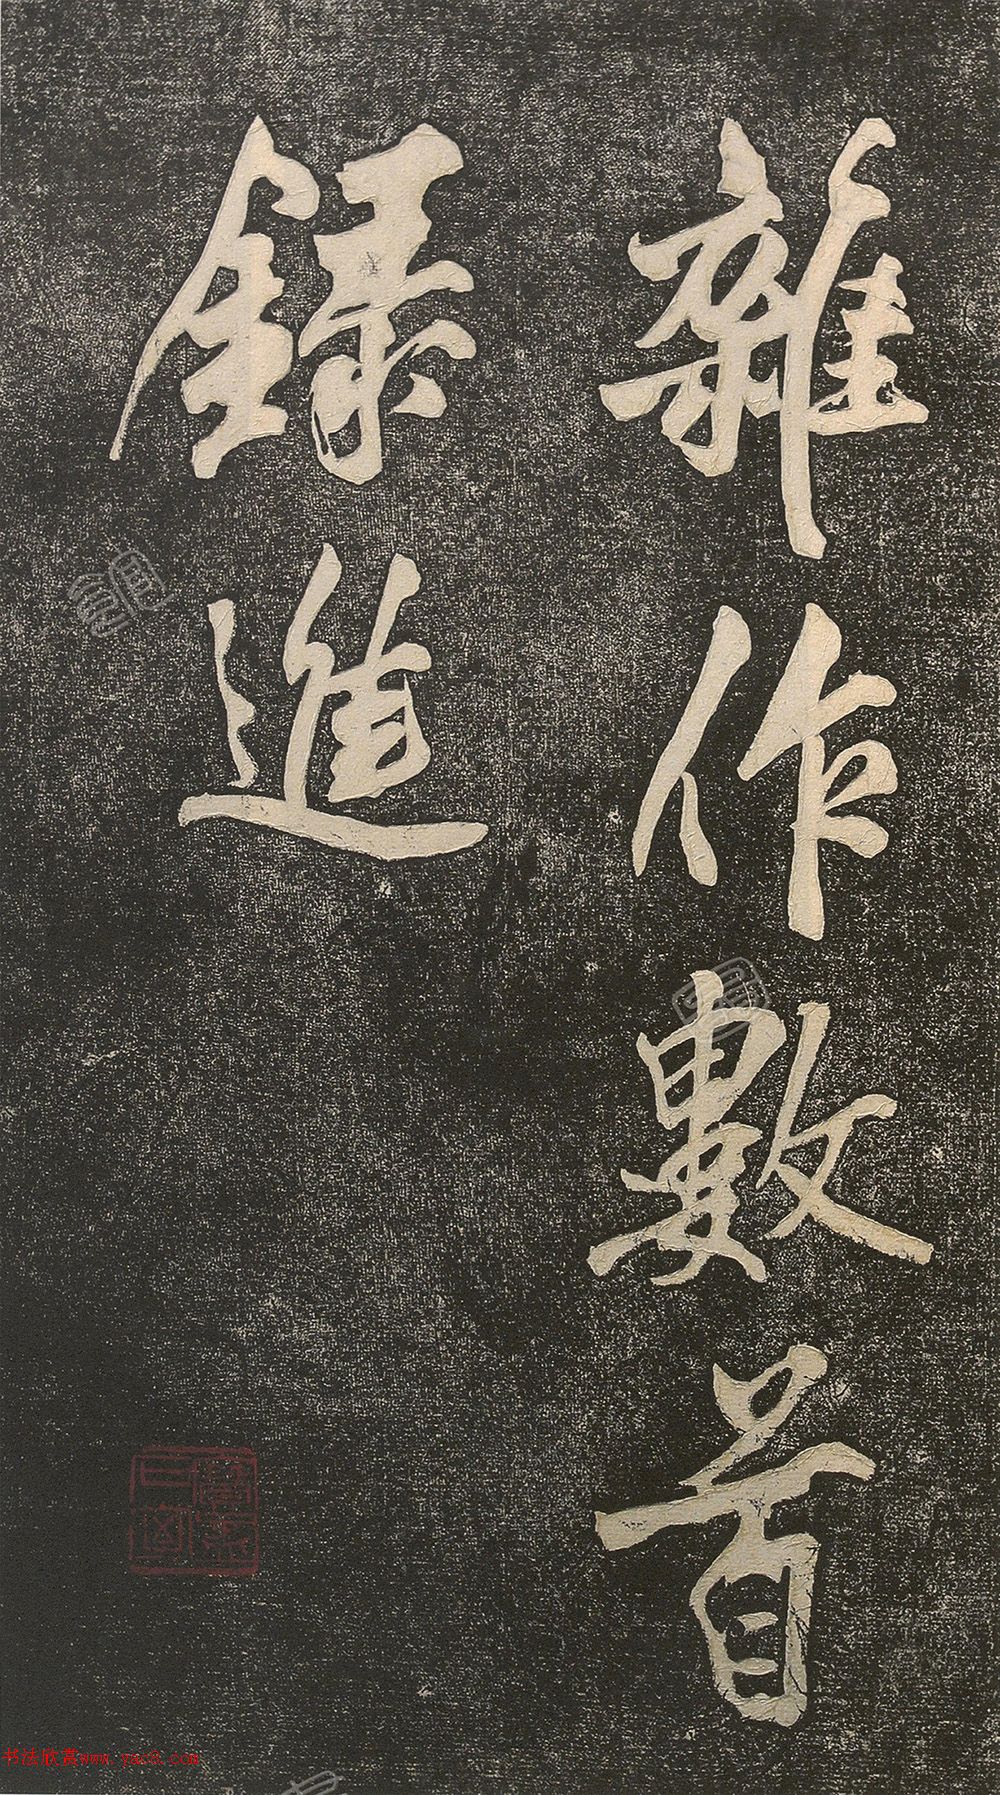 雜作數首
錄進
书法欣赏www.yac8.com